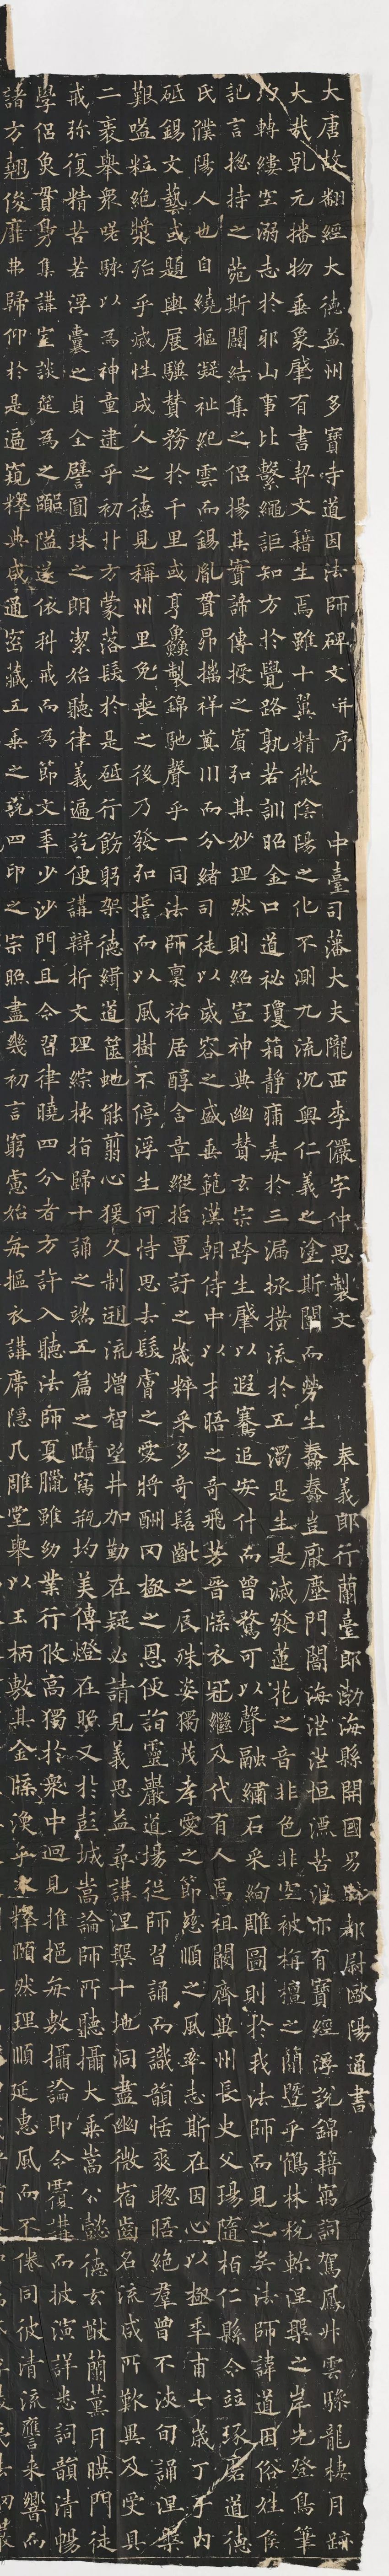 大唐故翻經大德益州多寶寺道因法師碑文并序 中臺司藩大夫隴西李儼字仲思製文 奉義郎行蘭臺郎渤海縣開國男騎都尉歐陽通書
大哉乹元播物垂象肇有書契文籍生焉雖十翼精微陰陽之化不測九流沉奧仁義之塗斯闡而勞生蠢蠢豈厭塵門闇海茫茫恒漂苦浪亦有寶經浮說錦籍寓詞駕鳳升雲驂龍棲月
均轉縷空溺志於邪山事比繫繩詎知方於覺路孰若訓昭金口道秘瓊箱靜痡毒於三漏拯橫流於五濁是生是滅發蓮花之音非色非空被栴檀之簡暨乎鶴林稅軫涅槃之岸先登鳥筆
記言揔持之菀斯闢結集之侶揚其實諦傳授之賓弘其妙理然則紹宣神典幽賛玄宗跨生肇以遐騫追安什而曾騖可以聲融繡石采絢雕圖則於我法師而見之矣法師諱道因俗姓侯
氏濮陽人也自繞樞凝祉紀雲而錫胤貫昴摛祥蓂川而分緒司徒以威容之盛垂範漢朝侍中以才晤之奇飛芳晉牒衣冠繼及代有人焉祖闕齊冀州長史父瑒隨柏仁縣令竝琢磨道德
砥錫文藝或題輿展驥賛務於千里或亨鱻製錦馳聲乎一同法師稟祐居醇含章縱哲覃訏之歲粹采多奇髫齔之辰殊姿獨茂孝愛之節慈順之風率志斯在因心以極年甫七歲丁乎內
艱嗌粒絕漿殆乎滅性成人之德見稱州里免喪之後乃發弘誓而以風樹不停浮生何恃思去髮膚之愛將酬罔極之恩便詣靈巖道場從師習誦而識韻恬爽聰晤絕羣曾不浹旬誦涅槃
二袠舉眾嗟駭以為神童逮乎初丱方蒙落髮於是砥行飭躬架德緝道篋虵能翦心猨久制遡流增智望井加勤在疑必請見義思益尋講涅槃十地洞盡幽微宿齒名流咸所歎異及受具
戒弥復精苦若浮囊之貞全譬圓珠之朗潔始聽律義遍訖便講辯析文理綜核指歸十誦之端五篇之賾寫瓶均美傳燈在照又於彭城嵩論師所聽攝大乘嵩公懿德玄猷蘭薰月暎門徒
學侶魚貫鳧集講室談筵為之嚻隘遂依科戒而為節文年少沙門且令習律曉四分者方許入聽法師夏臘雖幼業行攸高獨於衆中迥見推挹每敷攝論即令覆講而披演詳悉詞韻清暢
諸方翹俊靡弗歸仰於是遍窺釋典咸通密藏五乘之說四印之宗照盡幾初言窮慮始每摳衣講席隱几雕堂舉以玉柄敷其金牒渙乎冰釋頤然理順延惠風而不倦同彼清流應来響而